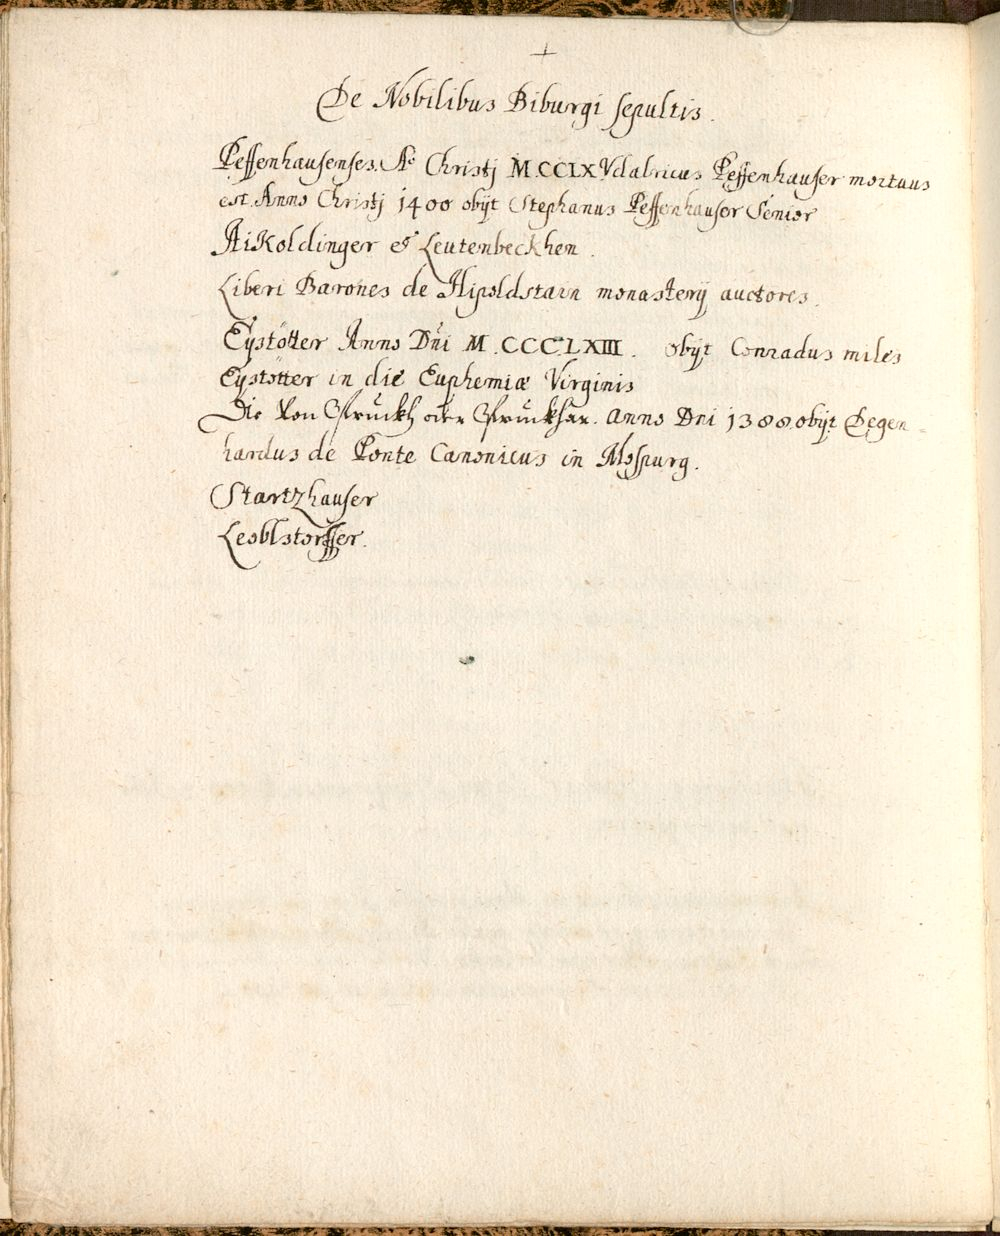 +
De Nobilibus Biburgi sepultis.
Peffenhausenses. Aᵒ Christj M.CCLX Vdalricus Peffenhauser mortuus
est. Anno Christj 1400 obijt Stephanus Peffenhauser Senior
Aikoldinger et Leutenbeckhen.
Liberi Barones de Hipoldstain monasterij auctores.
Eystötter Anno Dni M.CCCLXIII. obijt Conradus miles
Eystötter in die Euphemiæ Virginis
Die von Pruckh oder Pruckhar. Anno Dni 1388 obijt Degen=
hardus de Ponte Canonicus in Mospurg.
Startzhauser
Leoblstorffer.